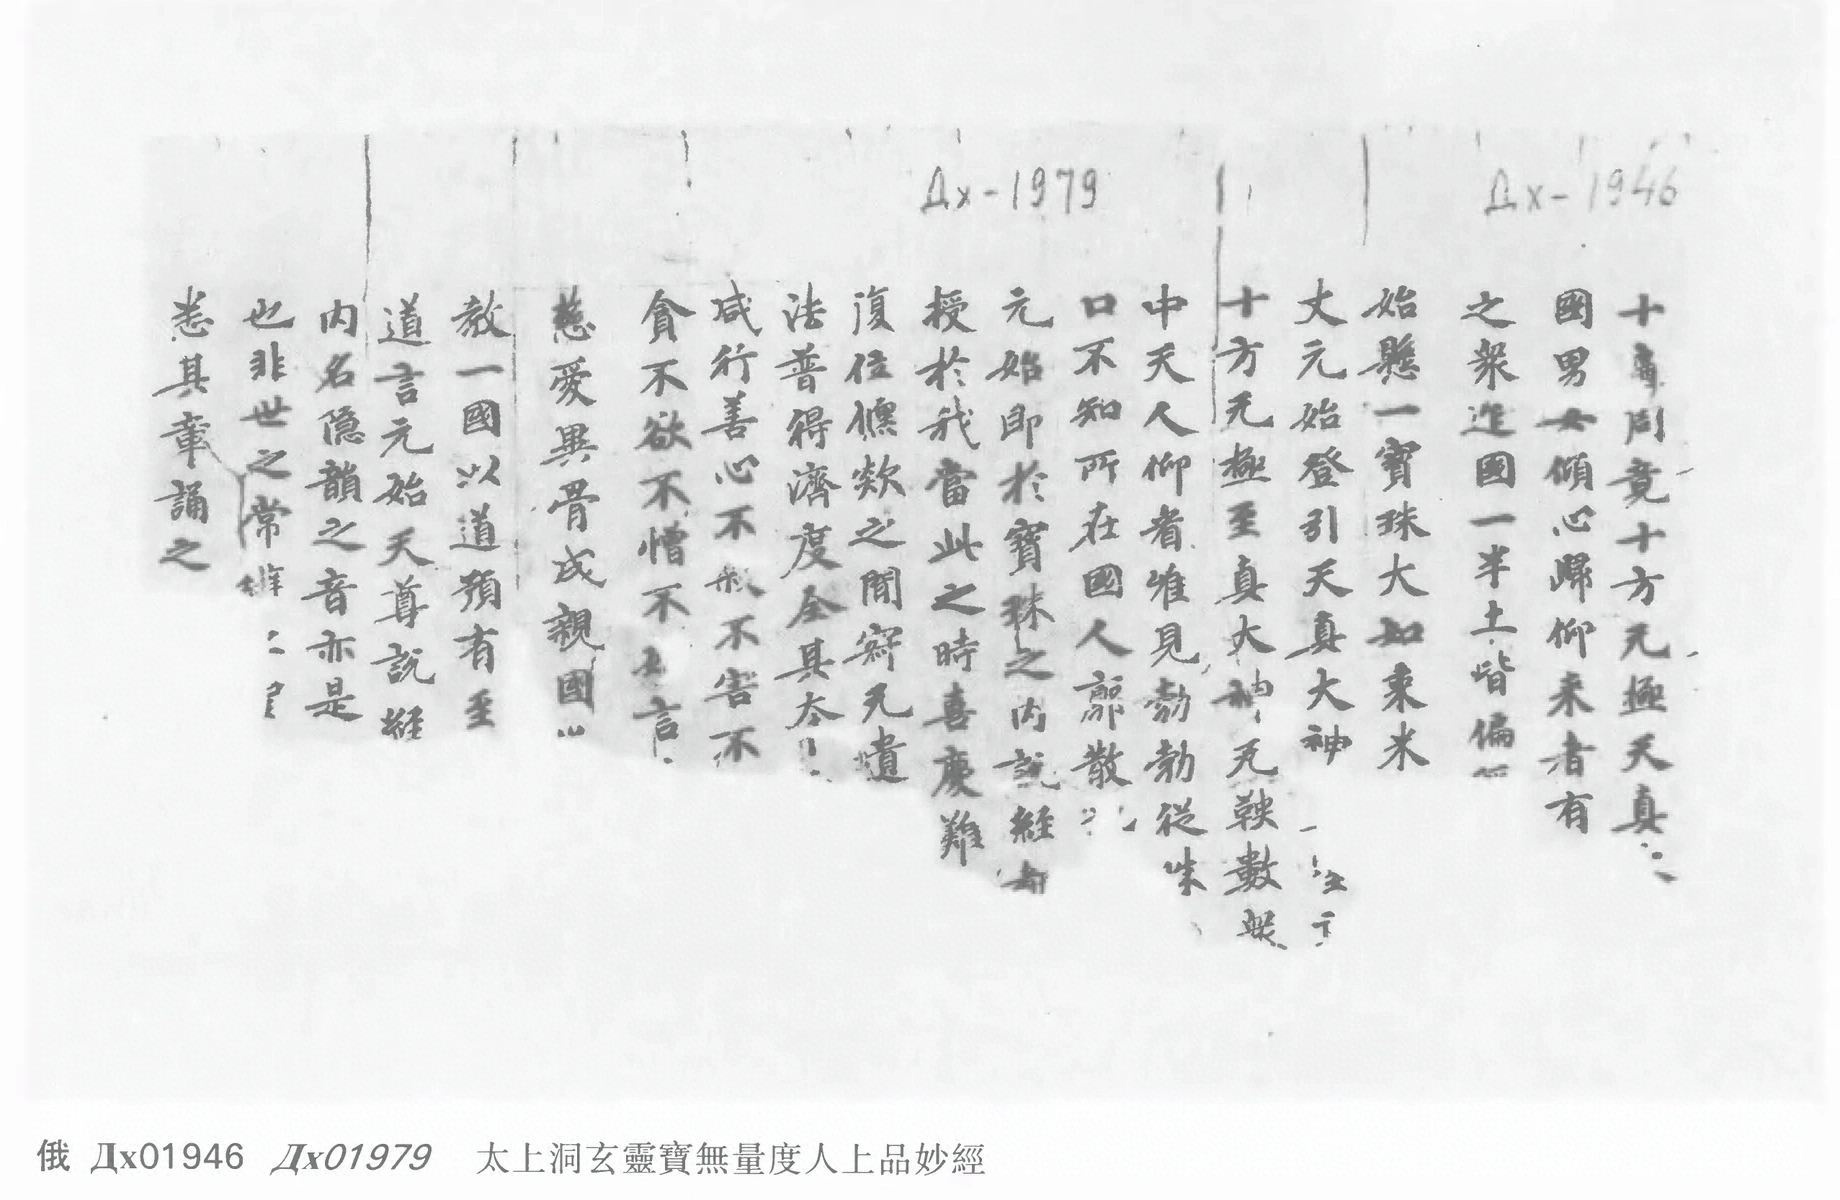 Дх-1946
Дх-1979
十遍周竟十方无極天真
國男女傾心歸仰来者有
之衆造國一半土皆偏
始懸一寶珠大如黍米
丈元始登引天真大神
十方无極至真大神无鞅數衆
中天人仰者唯見勃勃從珠
口不知所在國人廓散
元始即於寶珠之内説經都
授於我當此之時喜慶難
復位儵欻之間窈无遺
法普得濟度全其本
咸行善心不煞不害不
貪不欲不憎不 言
慈愛異骨成親國
教一國以道預有至
道言元始天尊説經
内名隐韻之音亦是
也非世之常辭
悉其章誦之
俄 Дх01946 Дх01979 太上洞玄靈寶無量度人上品妙經